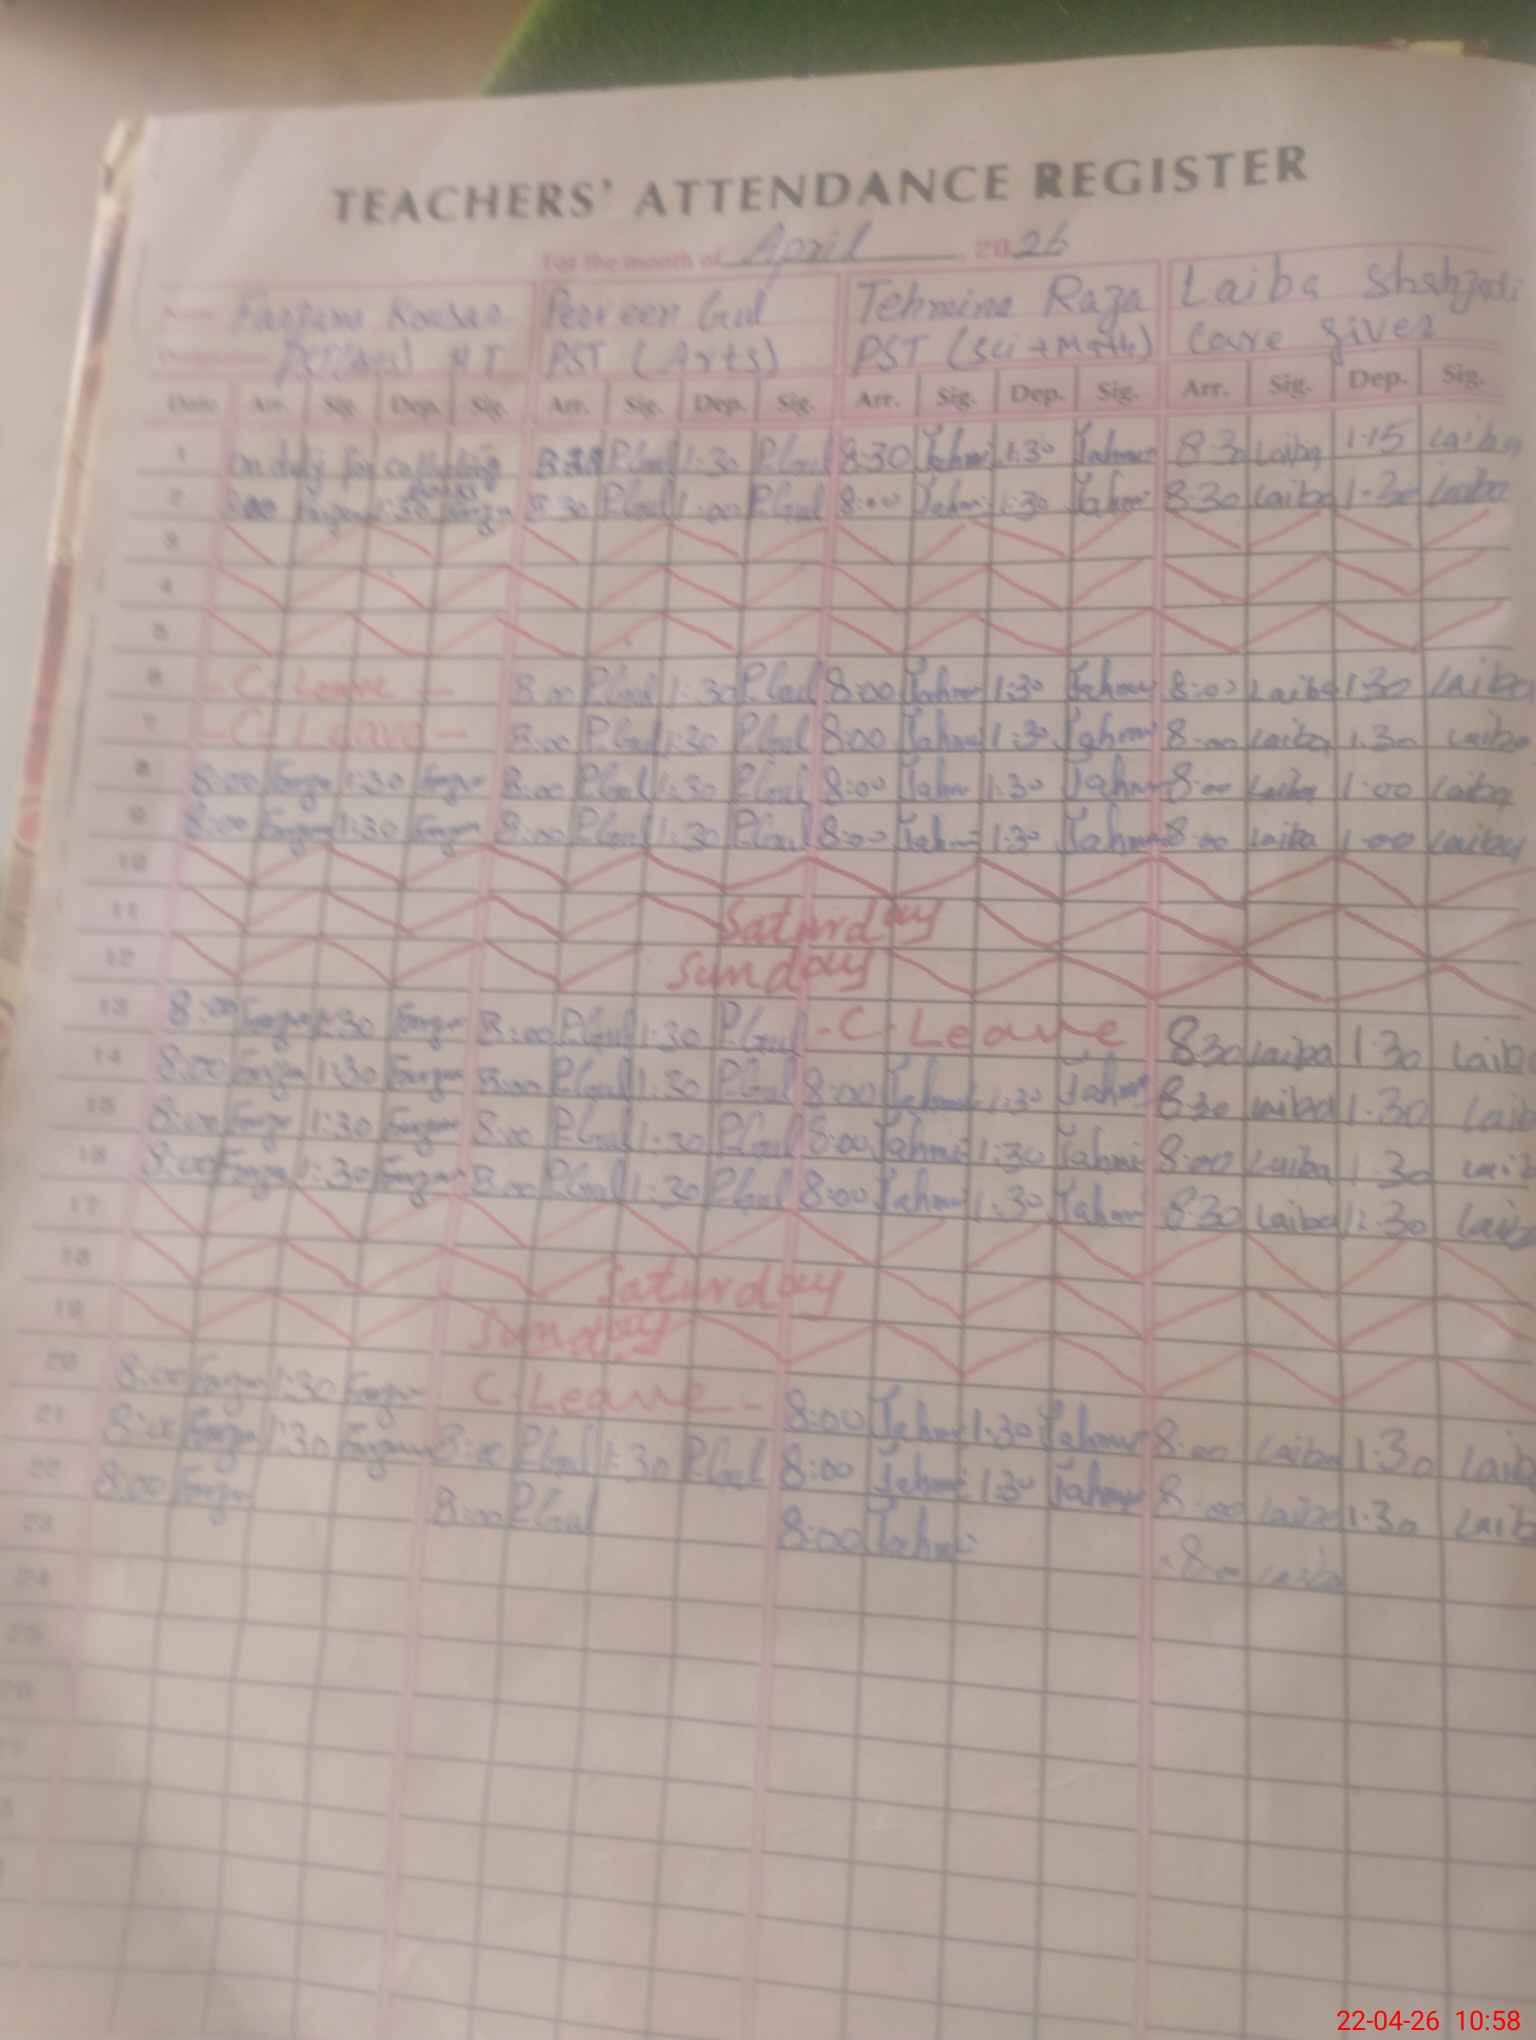 TEACHERS' ATTENDANCE REGISTER
For the month of April 2026
Name Farzana Kousar Perveen Gul Tehmina Raza Laiba Shahzadi
HT PST (Arts) PST (Sci + Math) Care giver
Date Arr. Sig. Dep. Sig. Arr. Sig. Dep. Sig. Arr. Sig. Dep. Sig. Arr. Sig. Dep. Sig.
1 on duty for collecting books P.Gul 1:30 P.Gul 8:30 Tahmi 1:30 Tahmi 8 30 Laiba 1:15 Laiba
2 8:00 Farzan 1:30 Farzan 8:30 P.Gul 1:00 P.Gul 8:00 Tahmi 1:30 Tahmi 8:30 Laiba 1:30 Laiba
3
4
5
6 - C. Leave - 8:00 P.Gul 1:30 P.Gul 8:00 Tahmi 1:30 Tahmi 8:00 Laiba 1:30 Laiba
7 - C. Leave - 8:00 P.Gul 1:30 P.Gul 8:00 Tahmi 1:30 Tahmi 8:00 Laiba 1:30 Laiba
8 8:00 Farzan 1:30 Farzan 8:00 P.Gul 1:30 P.Gul 8:00 Tahmi 1:30 Tahmi 8:00 Laiba 1:00 Laiba
9 8:00 Farzan 1:30 Farzan 8:00 P.Gul 1:30 P.Gul 8:00 Tahmi 1:30 Tahmi 8:00 Laiba 1:00 Laiba
10
11 Saturday
12 Sunday
13 8:00 Farzan 1:30 Farzan 8:00 P.Gul 1:30 P.Gul - C. Leave 830 Laiba 1:30 Laiba
14 8:00 Farzan 1:30 Farzan 8:00 P.Gul 1:30 P.Gul 8:00 Tahmi 1:30 Tahmi 830 Laiba 1:30 Laiba
15 8:00 Farzan 1:30 Farzan 8:00 P.Gul 1:30 P.Gul 8:00 Tahmi 1:30 Tahmi 8:00 Laiba 1:30 Laiba
16 8:00 Farzan 1:30 Farzan 8:00 P.Gul 1:30 P.Gul 8:00 Tahmi 1:30 Tahmi 830 Laiba 1:30 Laiba
17
18 Saturday
19 Sunday
20 8:00 Farzan 1:30 Farzan C. Leave - 8:00 Tahmi 1:30 Tahmi 8:00 Laiba 1:30 Laiba
21 8:00 Farzan 1:30 Farzan 8:00 P.Gul 1:30 P.Gul 8:00 Tahmi 1:30 Tahmi 8:00 Laiba 1:30 Laiba
22 8:00 Farzan 8:00 P.Gul 8:00 Tahmi 8:00 Laiba
23
24
25
26
22-04-26 10:58